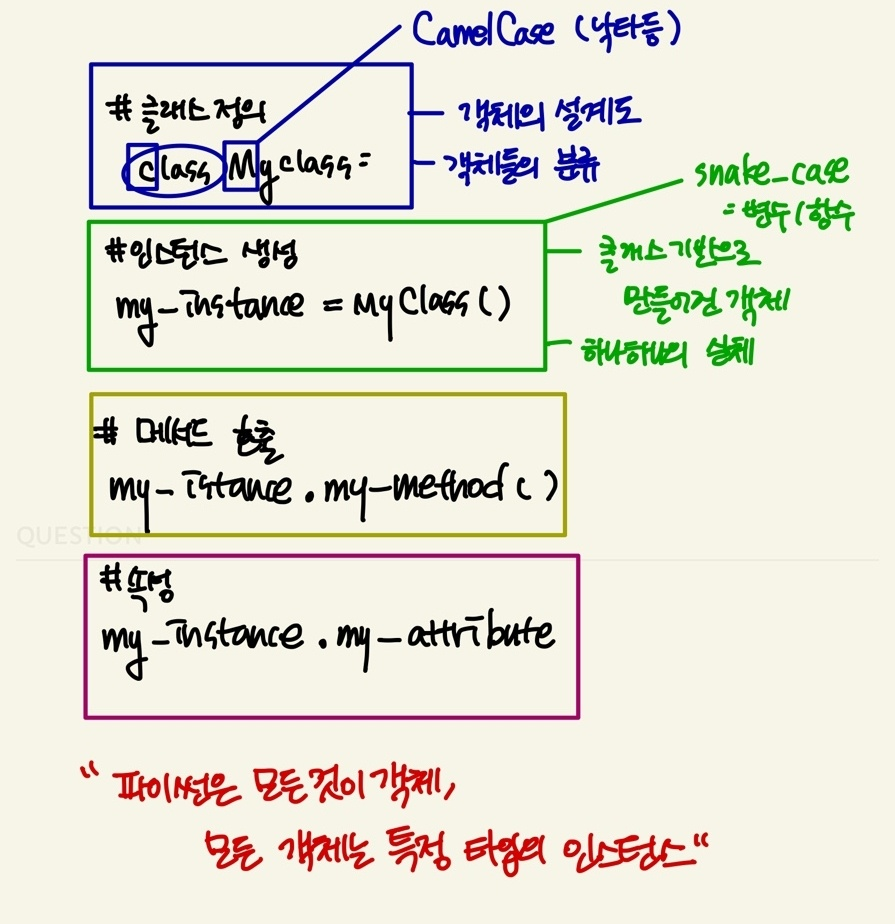 CamelCase (낙타등)
# 클래스 정의
class Myclass=
객체의 설계도
객체들의 분류
snake_case
= 변수/함수
#인스턴스 생성
my_instance = MyClass()
클래스기반으로
만들어진 객체
하나하나의 실체
# 메서드 호출
my_istance.my_method()
QUESTION
#속성
my_instance.my_attribute
"파이썬은 모든것이 객체,
모든 객체는 특정 타입의 인스턴스"